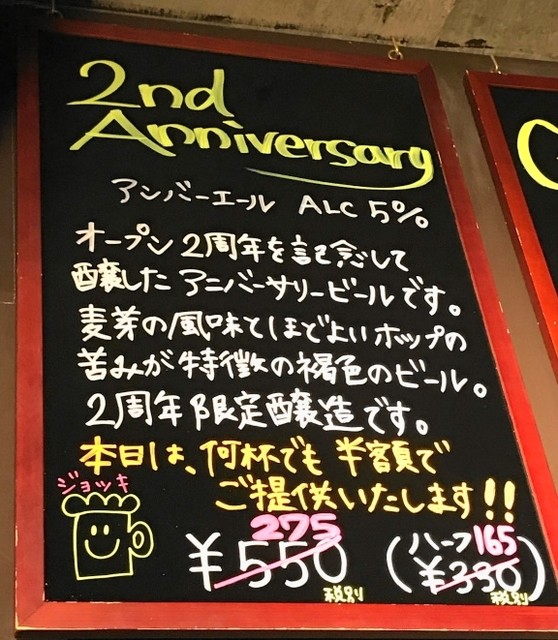 2nd
Anniversary
アンバーエール ALC 5%
オープン2周年を記念して
醸したアニバーサリービールです。
麦芽の風味とほどよいホップの
苦みが特徴の褐色のビール。
2周年限定醸造です。
本日は、何杯でも半額で
ご提供いたします!!
ジョッキ
275
¥550
税別
(ハーフ 165
¥330)
税別